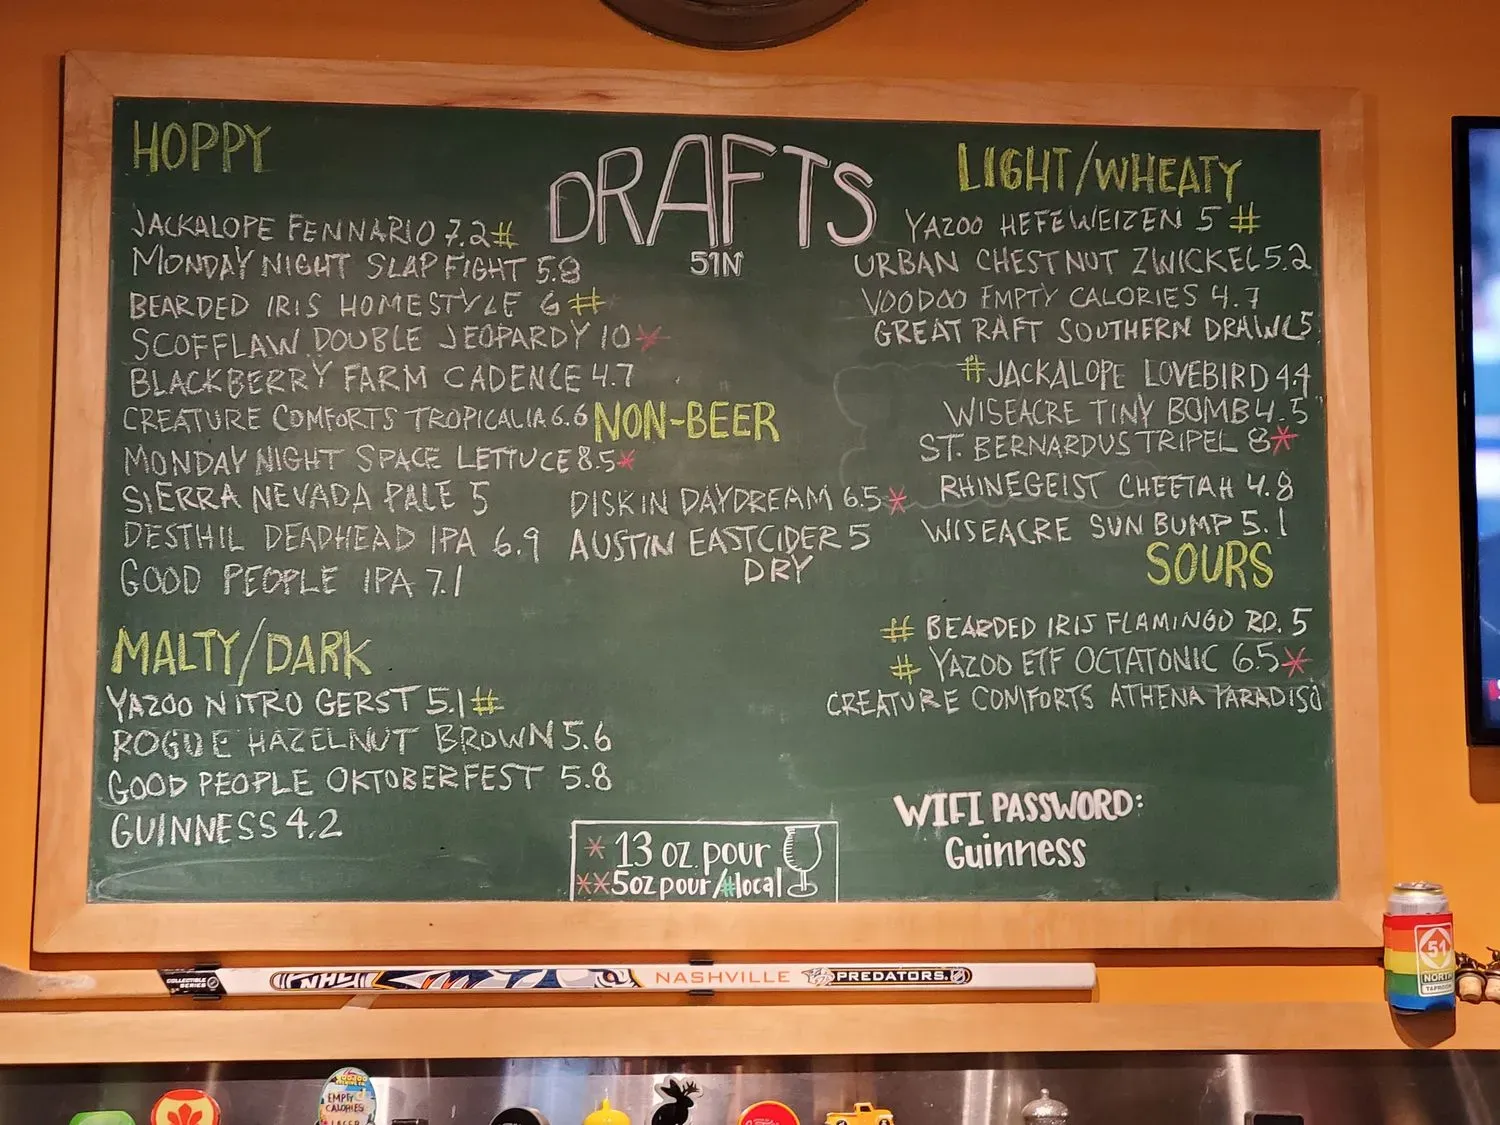 HOPPY
JACKALOPE FENNARIO 7.2 #
MONDAY NIGHT SLAP FIGHT 5.8
BEARDED IRIS HOMESTYLE 6 #
SCOFFLAW DOUBLE JEOPARDY 10 *
BLACKBERRY FARM CADENCE 4.7
CREATURE COMFORTS TROPICALIA 6.6
MONDAY NIGHT SPACE LETTUCE 8.5 *
SIERRA NEVADA PALE 5
DESTHIL DEADHEAD IPA 6.9
GOOD PEOPLE IPA 7.1
MALTY/DARK
YAZOO NITRO GERST 5.1 #
ROGUE HAZELNUT BROWN 5.6
GOOD PEOPLE OKTOBERFEST 5.8
GUINNESS 4.2
DRAFTS
51N
NON-BEER
DISKIN DAYDREAM 6.5 *
AUSTIN EASTCIDER 5
DRY
* 13 oz. pour
**5oz pour/#local
LIGHT/WHEATY
YAZOO HEFEWEIZEN 5 #
URBAN CHESTNUT ZWICKEL 5.2
VOODOO EMPTY CALORIES 4.7
GREAT RAFT SOUTHERN DRAWL 5
# JACKALOPE LOVEBIRD 4.4
WISEACRE TINY BOMB 4.5
ST. BERNARDUS TRIPEL 8 *
RHINEGEIST CHEETAH 4.8
WISEACRE SUN BUMP 5.1
SOURS
# BEARDED IRIS FLAMINGO RD. 5
# YAZOO ETF OCTATONIC 6.5 *
CREATURE COMFORTS ATHENA PARADISO
WIFI PASSWORD:
Guinness
COLLECTIBLE
SERIES
NHL
NASHVILLE
PREDATORS
51
NORTH
TAPROOM
EMPTY
CALORIES
LAGER